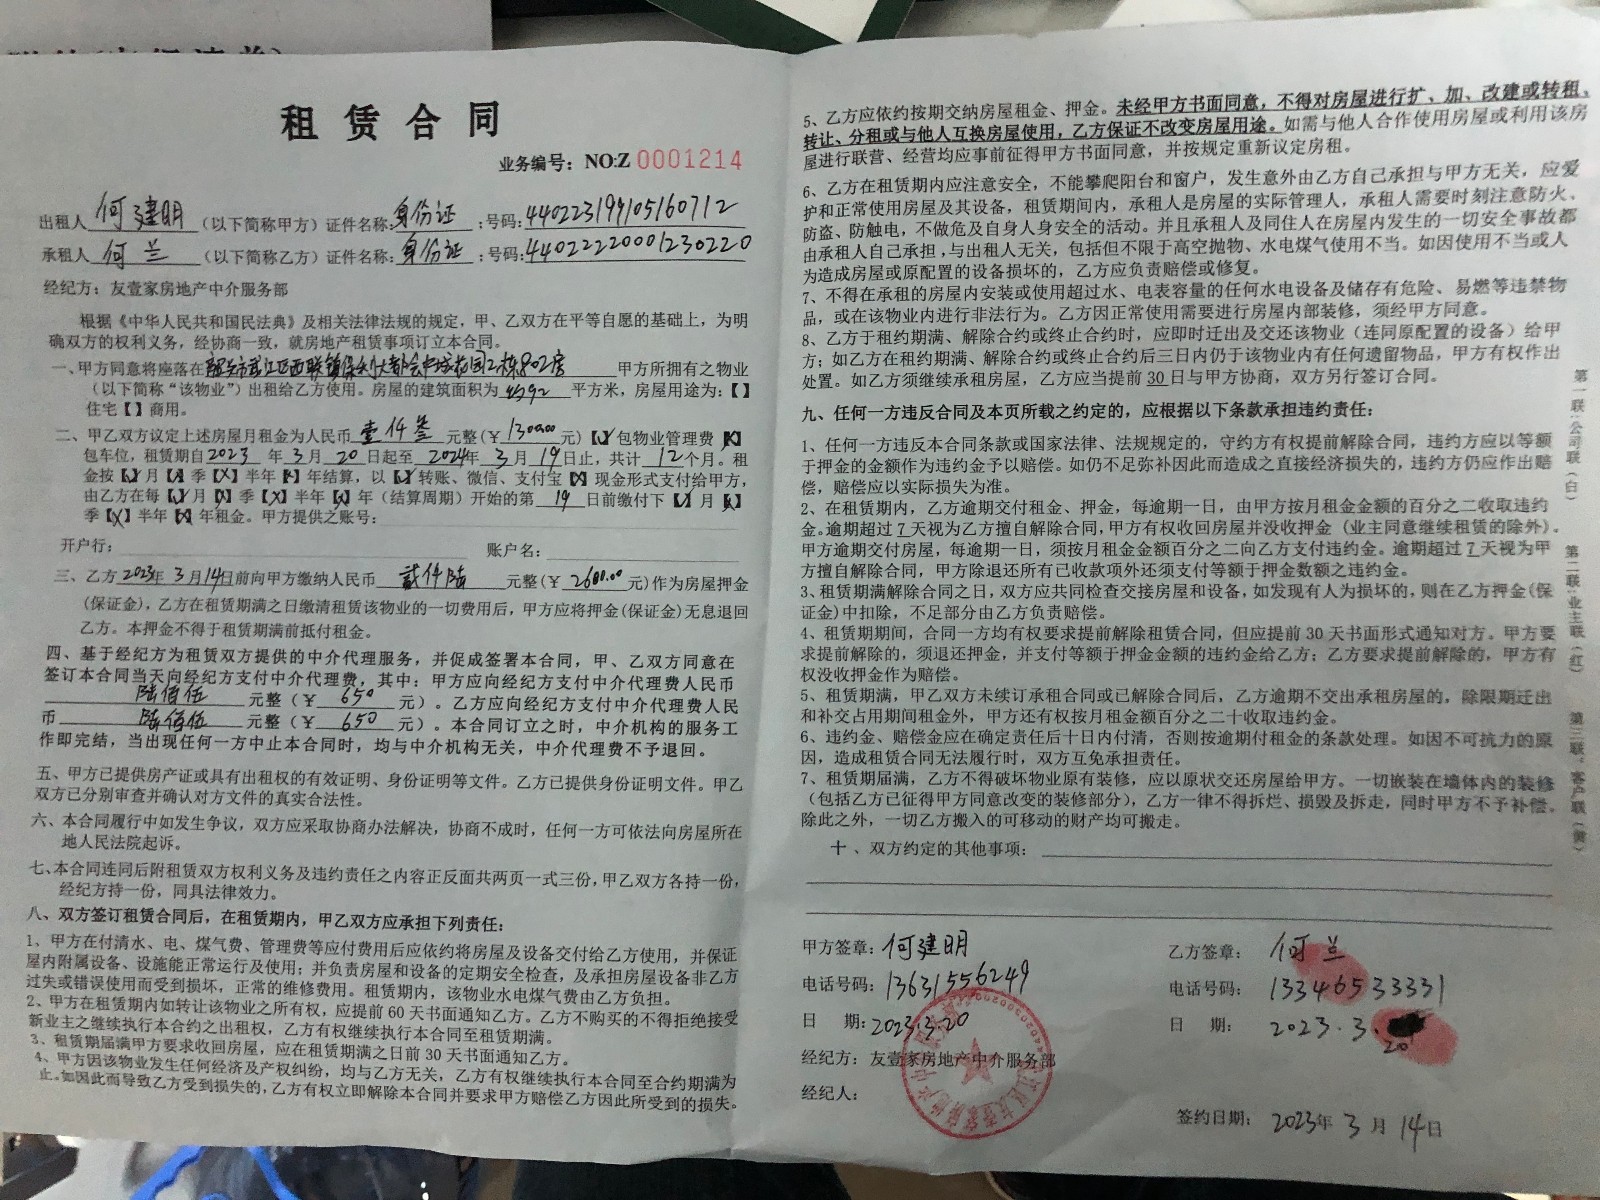 租赁合同
业务编号：NO:Z 0001214
出租人 何建明 （以下简称甲方）证件名称:身份证 :号码:440223199105160712
承租人 何兰 （以下简称乙方）证件名称:身份证 :号码:440222200001230220
经纪方：友壹家房地产中介服务部
根据《中华人民共和国民法典》及相关法律法规的规定，甲、乙双方在平等自愿的基础上，为明
确双方的权利义务，经协商一致，就房地产租赁事项订立本合同。
一、甲方同意将座落在韶关市武江区西联镇保利大都会中城花园2栋802房 甲方所拥有之物业
（以下简称“该物业”）出租给乙方使用。房屋的建筑面积为 平方米，房屋用途为：【】
住宅【】商用。
二、甲乙双方议定上述房屋月租金为人民币 壹仟叁 元整(￥1300.00元)【√】包物业管理费【X】
包车位，租赁期自2023 年 3 月 20 日起至 2024年 3 月 19日止，共计 12个月。租
金按【√】月【X】季【X】半年【X】年结算，以【√】转账、微信、支付宝【X】现金形式支付给甲方，
由乙方在每【√】月【X】季【X】半年【X】年（结算周期）开始的第 19 日前缴付下【√】月【X】
季【X】半年【X】年租金。甲方提供之账号：
开户行： 账户名：
三、乙方2023年3月14日前向甲方缴纳人民币 贰仟陆 元整(￥2600.00元)作为房屋押金
(保证金)，乙方在租赁期满之日缴清租赁该物业的一切费用后，甲方应将押金(保证金)无息退回
乙方。本押金不得于租赁期满前抵付租金。
四、基于经纪方为租赁双方提供的中介代理服务，并促成签署本合同，甲、乙双方同意在
签订本合同当天向经纪方支付中介代理费，其中：甲方应向经纪方支付中介代理费人民币
陆佰伍 元整（￥ 650 元）。乙方应向经纪方支付中介代理费人民
币 陆佰伍 元整（￥ 650 元）。本合同订立之时，中介机构的服务工
作即完结，当出现任何一方中止本合同时，均与中介机构无关，中介代理费不予退回。
五、甲方已提供房产证或具有出租权的有效证明、身份证明等文件。乙方已提供身份证明文件。甲乙
双方已分别审查并确认对方文件的真实合法性。
六、本合同履行中如发生争议，双方应采取协商办法解决，协商不成时，任何一方可依法向房屋所在
地人民法院起诉。
七、本合同连同后附租赁双方权利义务及违约责任之内容正反面共两页一式三份，甲乙双方各持一份，
经纪方持一份，同具法律效力。
八、双方签订租赁合同后，在租赁期内，甲乙双方应承担下列责任：
1、甲方在付清水、电、煤气费、管理费等应付费用后应依约将房屋及设备交付给乙方使用，并保证
屋内附属设备、设施能正常运行及使用；并负责房屋和设备的定期安全检查，及承担房屋设备非乙方
过失或错误使用而受到损坏，正常的维修费用。租赁期内，该物业水电煤气费由乙方负担。
2、甲方在租赁期内如转让该物业之所有权，应提前60天书面通知乙方。乙方不购买的不得拒绝接受
新业主之继续执行本合约之出租权，乙方有权继续执行本合同至租赁期满。
3、租赁期届满甲方要求收回房屋，应在租赁期满之日前30天书面通知乙方。
4、甲方因该物业发生任何经济及产权纠纷，均与乙方无关，乙方有权继续执行本合同至合约期满为
止。如因此而导致乙方受到损失的，乙方有权立即解除本合同并要求甲方赔偿乙方因此所受到的损失。
5、乙方应依约按期交纳房屋租金、押金。未经甲方书面同意，不得对房屋进行扩、加、改建或转租、
转让、分租或与他人互换房屋使用，乙方保证不改变房屋用途。如需与他人合作使用房屋或利用该房
屋进行联营、经营均应事前征得甲方书面同意，并按规定重新议定房租。
6、乙方在租赁期内应注意安全，不能攀爬阳台和窗户，发生意外由乙方自己承担与甲方无关，应爱
护和正常使用房屋及其设备，租赁期间内，承租人是房屋的实际管理人，承租人需要时刻注意防火、
防盗、防触电，不做危及自身人身安全的活动。并且承租人及同住人在房屋内发生的一切安全事故都
由承租人自己承担，与出租人无关，包括但不限于高空抛物、水电煤气使用不当。如因使用不当或人
为造成房屋或原配置的设备损坏的，乙方应负责赔偿或修复。
7、不得在承租的房屋内安装或使用超过水、电表容量的任何水电设备及储存有危险、易燃等违禁物
品，或在该物业内进行非法行为。乙方因正常使用需要进行房屋内部装修，须经甲方同意。
8、乙方于租约期满、解除合约或终止合约时，应即时迁出及交还该物业（连同原配置的设备）给甲
方；如乙方在租约期满、解除合约或终止合约后三日内仍于该物业内有任何遗留物品，甲方有权作出
处置。如乙方须继续承租房屋，乙方应当提前30日与甲方协商，双方另行签订合同。
九、任何一方违反合同及本页所载之约定的，应根据以下条款承担违约责任：
1、任何一方违反本合同条款或国家法律、法规规定的，守约方有权提前解除合同，违约方应以等额
于押金的金额作为违约金予以赔偿。如仍不足弥补因此而造成之直接经济损失的，违约方仍应作出赔
偿，赔偿应以实际损失为准。
2、在租赁期内，乙方逾期交付租金、押金，每逾期一日，由甲方按月租金金额的百分之二收取违约
金。逾期超过7天视为乙方擅自解除合同，甲方有权收回房屋并没收押金（业主同意继续租赁的除外）。
甲方逾期交付房屋，每逾期一日，须按月租金金额百分之二向乙方支付违约金。逾期超过7天视为甲
方擅自解除合同，甲方除退还所有已收款项外还须支付等额于押金数额之违约金。
3、租赁期满解除合同之日，双方应共同检查交接房屋和设备，如发现有人为损坏的，则在乙方押金(保
证金)中扣除，不足部分由乙方负责赔偿。
4、租赁期期间，合同一方均有权要求提前解除租赁合同，但应提前30天书面形式通知对方。甲方要
求提前解除的，须退还押金，并支付等额于押金金额的违约金给乙方；乙方要求提前解除的，甲方有
权没收押金作为赔偿。
5、租赁期满，甲乙双方未续订承租合同或已解除合同后，乙方逾期不交出承租房屋的，除限期迁出
和补交占用期间租金外，甲方还有权按月租金额百分之二十收取违约金。
6、违约金、赔偿金应在确定责任后十日内付清，否则按逾期付租金的条款处理。如因不可抗力的原
因，造成租赁合同无法履行时，双方互免承担责任。
7、租赁期届满，乙方不得破坏物业原有装修，应以原状交还房屋给甲方。一切嵌装在墙体内的装修
（包括乙方已征得甲方同意改变的装修部分），乙方一律不得拆烂、损毁及拆走，同时甲方不予补偿。
除此之外，一切乙方搬入的可移动的财产均可搬走。
十、双方约定的其他事项：
甲方签章：何建明
电话号码：13631556249
日 期：2023.3.20
经纪方：友壹家房地产中介服务部
经纪人：
乙方签章： 何兰
电话号码： 13346533331
日 期： 2023.3. 20
签约日期： 2023年 3 月 14日
第一联:公司联（白） 第二联:业主联（红） 第三联:客户联（黄）